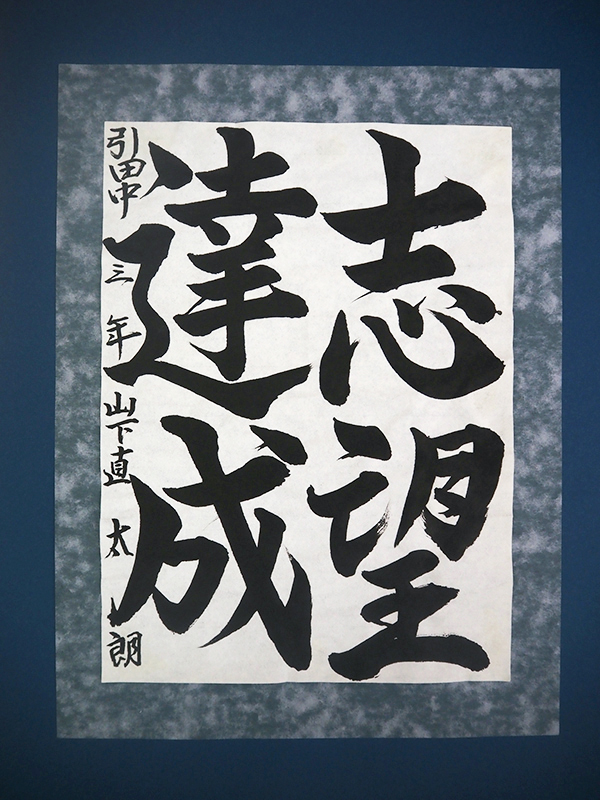 志望
達成
引田中 三年 山下直太朗